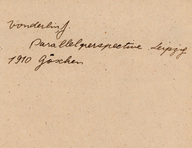 Vonderlinf.
Parallelperspective Leipzig
1910 Göschen